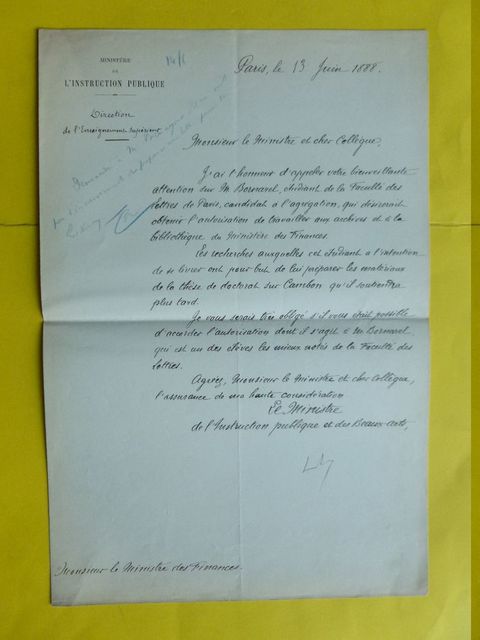 MINISTÈRE
DE
L'INSTRUCTION PUBLIQUE
Direction
de l'Enseignement Supérieur
14/6
Paris, le 13 Juin 1888.
Monsieur le Ministre et cher Collègue,
J'ai l'honneur d'appeler votre bienveillante
attention sur M. Bornarel, étudiant de la Faculté des
lettres de Paris, candidat à l'agrégation, qui désirerait
obtenir l'autorisation de travailler aux archives et à la
bibliothèque du Ministère des Finances.
Les recherches auxquelles cet étudiant a l'intention
de se livrer ont pour but de lui préparer les matériaux
de la thèse de doctorat sur Cambon qu'il soutiendra
plus tard.
Je vous serais très obligé s'il vous était possible
d'accorder l'autorisation dont il s'agit à M. Bornarel,
qui est un des élèves les mieux notés de la Faculté des
lettres.
Agréez, Monsieur le Ministre et cher Collègue,
l'assurance de ma haute considération
Le Ministre
de l'Instruction publique et des Beaux-arts,
Monsieur le Ministre des Finances.